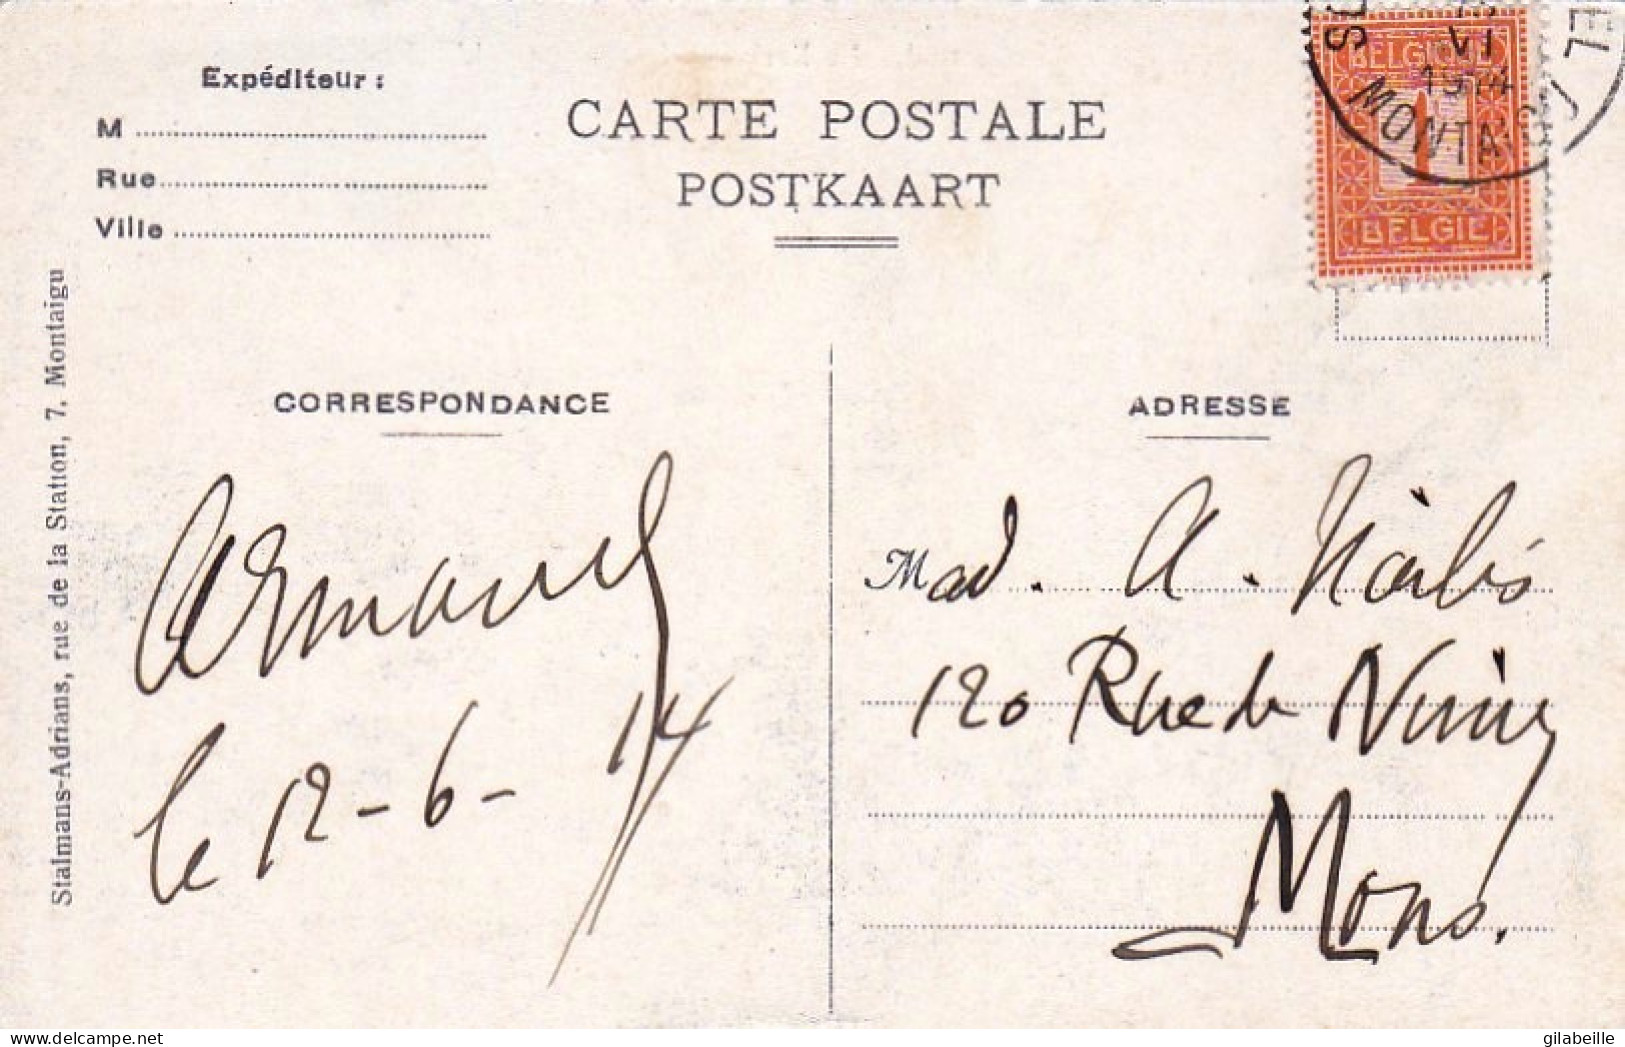 Expéditeur :
M
Rue
Ville
CARTE POSTALE
POSTKAART
BELGIQUE
1
BELGIE
VI
1914
MONTAIGU
Stalmans-Adrians, rue de la Station, 7. Montaigu
CORRESPONDANCE
Armand
le 12-6-14
ADRESSE
Mad. A.
120 Rue de Nimy
Mons.
gilabeille